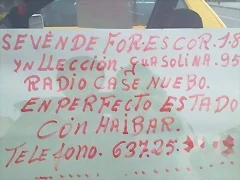 SE VENDE FORESCOR.1.8
YN LLECCIÓN. GUASOLINA.95
RADIO CASE NUEBO.
EN PERFECTO ESTADO
CON HAIBAR.
TELEFONO. 637.25.